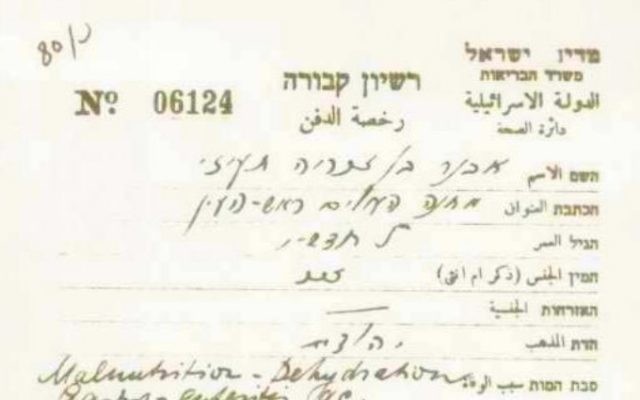 מדינת ישראל
משרד הבריאות
الدولة الاسرائيلية
دائرة الصحة
רשיון קבורה
رخصة الدفن
Nº 06124
השם الاسم אבנר בן
הכתבת العنوان מחנה העולים ראש-העין
הגיל العمر חדשים
המין الجنس (ذكر ام انثى) זכר
האזרחות الجنسية —
הדת المذهب יהודי
סבת המות سبب الوفاة Malnutrition - Dehydration